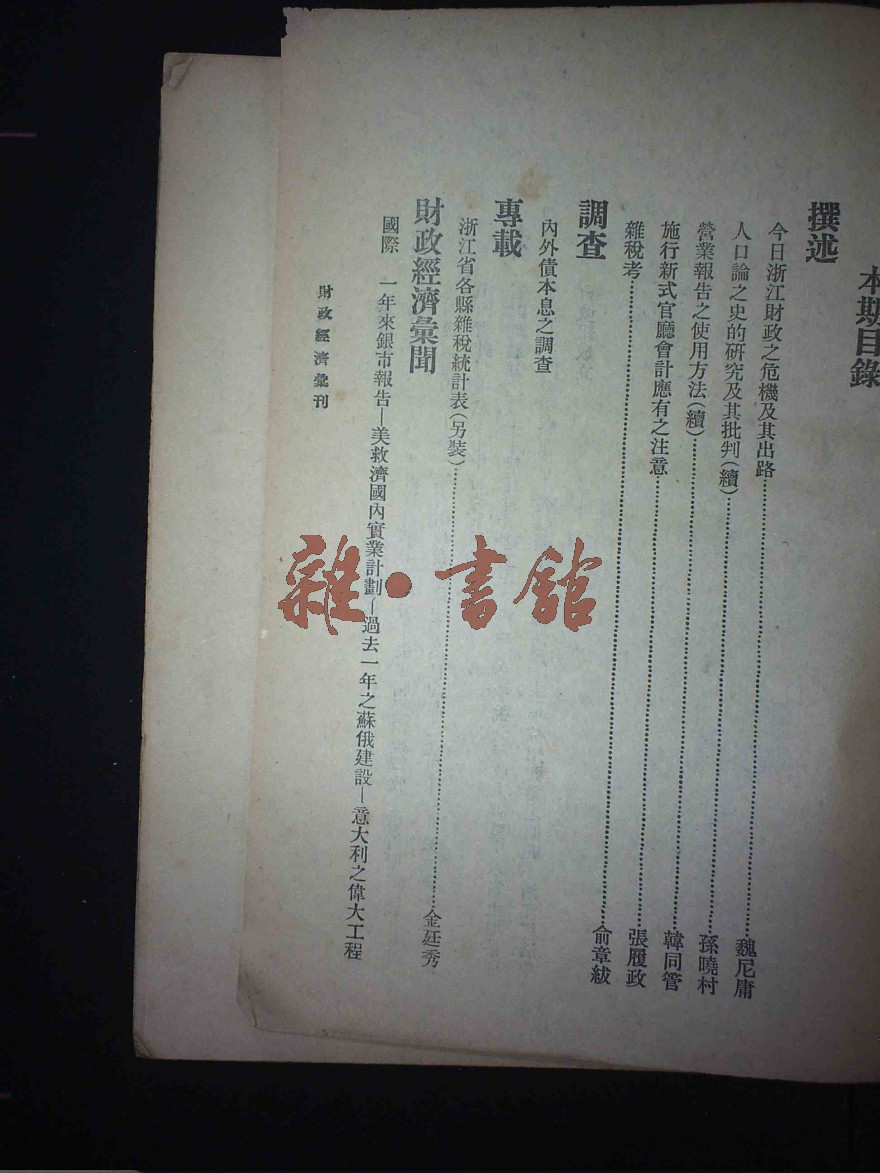 本期目錄
撰述
今日浙江財政之危機及其出路⋯⋯魏尼庸
人口論之史的研究及其批判(續)⋯⋯孫曉村
營業報告之使用方法(續)⋯⋯韓同管
施行新式官廳會計應有之注意⋯⋯張履政
雜稅考⋯⋯俞章紱
調查
內外債本息之調查
專載
浙江省各縣雜稅統計表(另裝)⋯⋯金廷秀
財政經濟彙聞
國際 一年來銀市報告—美救濟國內實業計劃—過去一年之蘇俄建設—意大利之偉大工程
財政經濟彙刊
雜·書館